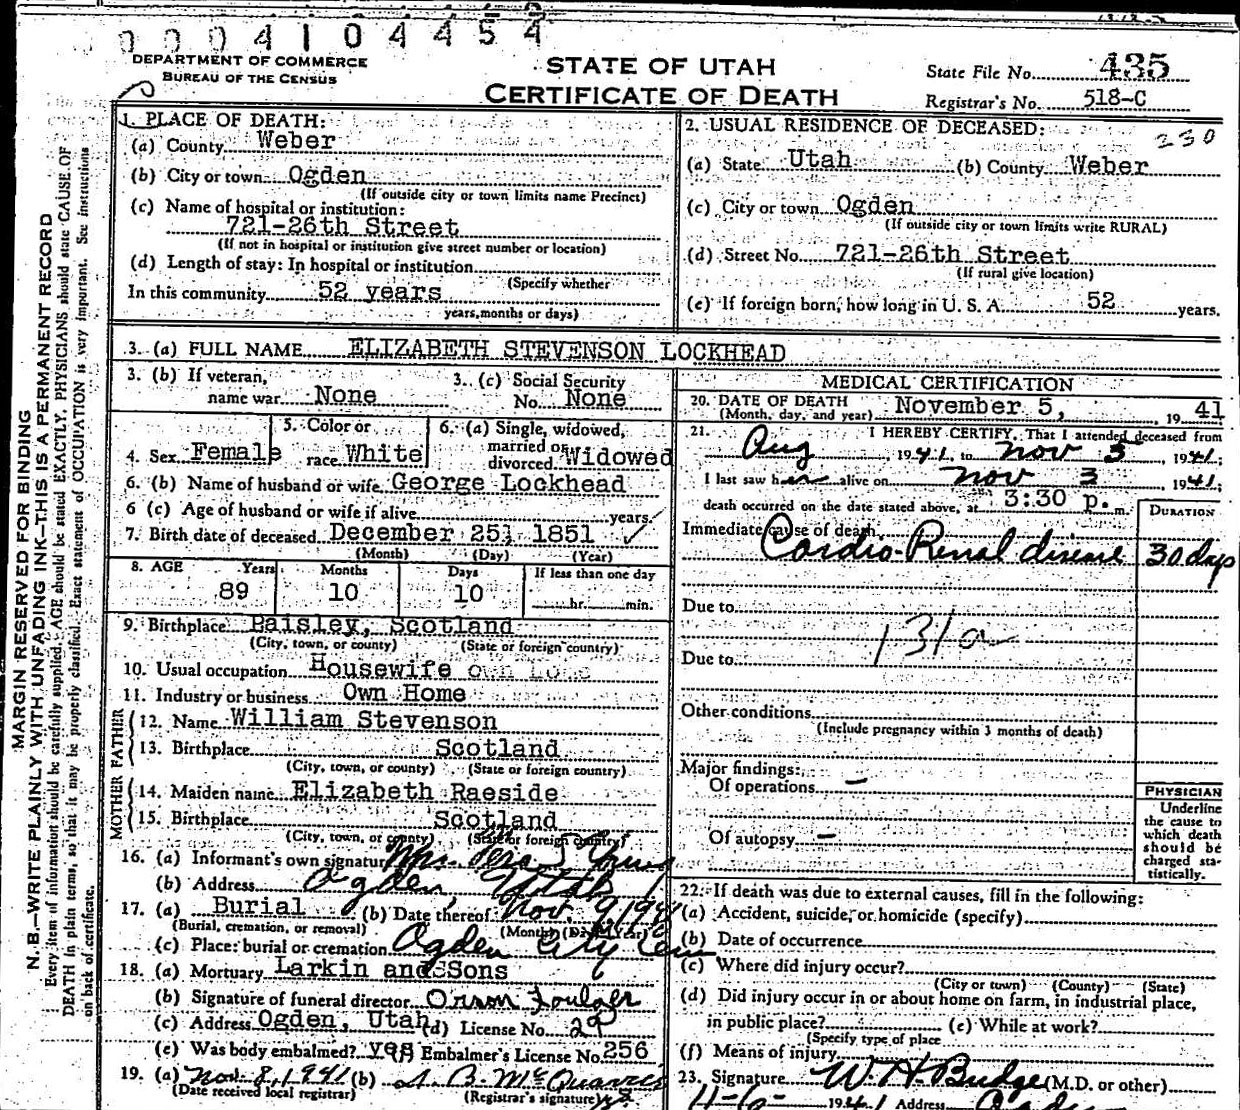 00041044454
DEPARTMENT OF COMMERCE
BUREAU OF THE CENSUS
STATE OF UTAH
CERTIFICATE OF DEATH
State File No. 435
Registrar's No. 518-C
MARGIN RESERVED FOR BINDING
N. B.—WRITE PLAINLY WITH UNFADING INK—THIS IS A PERMANENT RECORD
Every item of information should be carefully supplied. AGE should be stated EXACTLY. PHYSICIANS should state CAUSE OF
DEATH in plain terms, so that it may be properly classified. Exact statement of OCCUPATION is very important. See instructions
on back of certificate.
1. PLACE OF DEATH:
(a) County Weber
(b) City or town Ogden
(If outside city or town limits name Precinct)
(c) Name of hospital or institution:
721-26th Street
(If not in hospital or institution give street number or location)
(d) Length of stay: In hospital or institution
(Specify whether
In this community 52 years
years, months or days)
2. USUAL RESIDENCE OF DECEASED: 230
(a) State Utah (b) County Weber
(c) City or town Ogden
(If outside city or town limits write RURAL)
(d) Street No. 721-26th Street
(If rural give location)
(e) If foreign born, how long in U. S. A. 52 years.
3. (a) FULL NAME ELIZABETH STEVENSON LOCKHEAD
3. (b) If veteran, name war None
3. (c) Social Security No. None
4. Sex Female
5. Color or race White
6. (a) Single, widowed, married or divorced Widowed
6. (b) Name of husband or wife George Lockhead
6 (c) Age of husband or wife if alive years
7. Birth date of deceased December 25, 1851
(Month) (Day) (Year)
8. AGE Years Months Days If less than one day
89 10 10 hr. min.
9. Birthplace Paisley, Scotland
(City, town, or county) (State or foreign country)
10. Usual occupation Housewife own
11. Industry or business Own Home
FATHER
12. Name William Stevenson
13. Birthplace Scotland
(City, town, or county) (State or foreign country)
MOTHER
14. Maiden name Elizabeth Raeside
15. Birthplace Scotland
(City, town, or county) (State or foreign country)
16. (a) Informant's own signature Mrs.
(b) Address Ogden, Utah
17. (a) Burial (b) Date thereof Nov. 9, 194
(Burial, cremation, or removal) (Month) (Day) (Year)
(c) Place: burial or cremation Ogden City Cem
18. (a) Mortuary Larkin and Sons
(b) Signature of funeral director Orson Foulger
(c) Address Ogden, Utah (d) License No. 29
(e) Was body embalmed? yes Embalmer's License No. 256
19. (a) Nov. 8, 1941 (b)
(Date received local registrar) (Registrar's signature)
MEDICAL CERTIFICATION
20. DATE OF DEATH
(Month, day, and year) November 5, 1941
21. I HEREBY CERTIFY, That I attended deceased from
Aug 1941, to Nov 5, 1941;
I last saw her alive on Nov 3 1941;
death occurred on the date stated above, at 3:30 p. m.
DURATION
Immediate cause of death
Cardio-Renal disease 30 days
Due to
131a
Due to
Other conditions
(Include pregnancy within 3 months of death)
Major findings:
Of operations —
Of autopsy —
PHYSICIAN
Underline
the cause to
which death
should be
charged sta-
tistically.
22. If death was due to external causes, fill in the following:
(a) Accident, suicide, or homicide (specify)
(b) Date of occurrence
(c) Where did injury occur?
(City or town) (County) (State)
(d) Did injury occur in or about home on farm, in industrial place,
in public place? (e) While at work?
(Specify type of place
(f) Means of injury
23. Signature W. H. Budge (M.D. or other)
11-6- 1941 Address